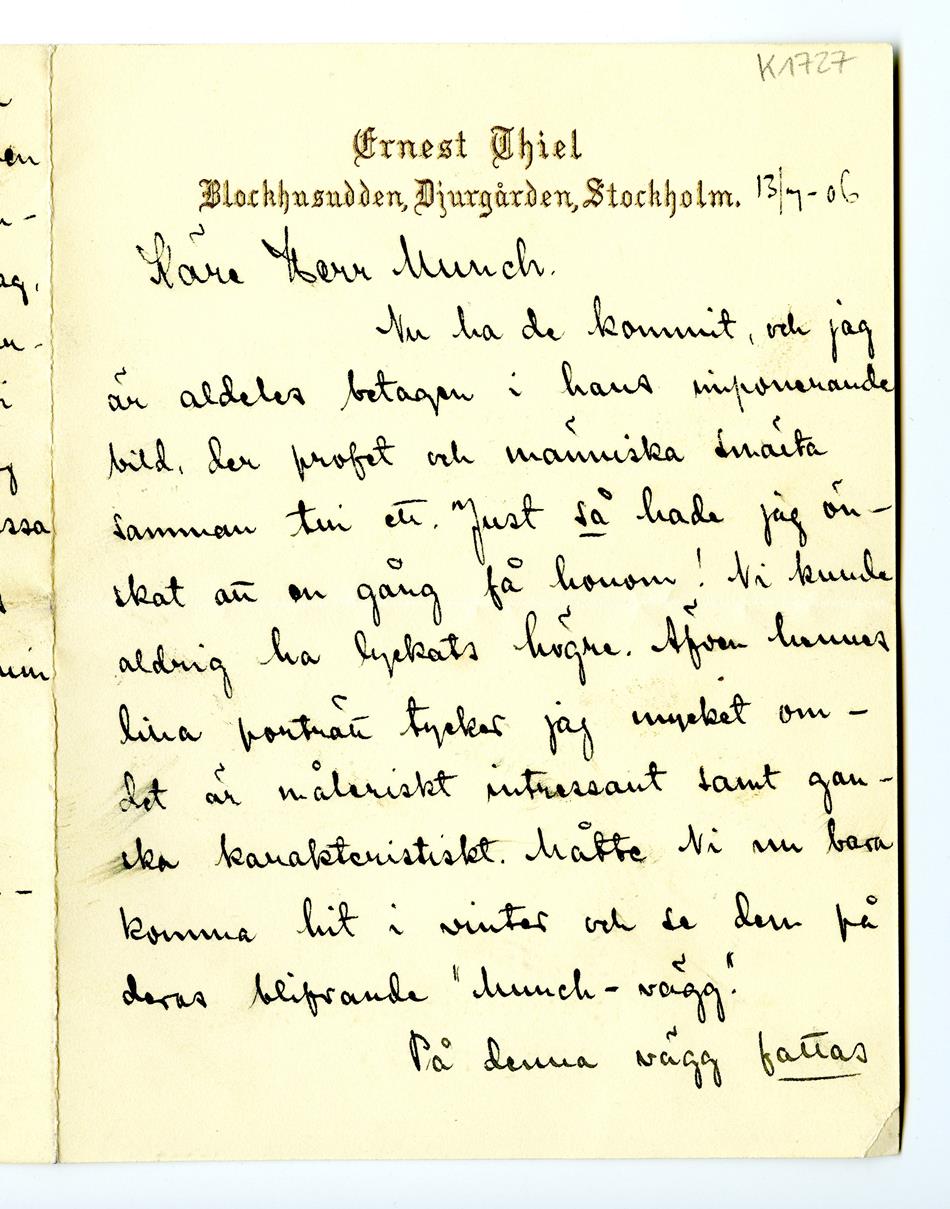 K1727
Ernest Thiel
Blockhusudden, Djurgården, Stockholm. 13/7-06
Käre Herr Munch.
Nu ha de kommit, och jag
är aldeles betagen i hans imponerande
bild, der profet och människa smälta
samman till ett. Just så hade jag ön-
skat att en gång få honom! Ni kunde
aldrig ha lyckats högre. Äfven hennes
lilla porträtt tycker jag mycket om -
det är måleriskt intressant samt gan-
ska karakteristiskt. Måtte Ni nu bara
komma hit i vinter och se dem på
deras blifvande "Munch-vägg".
På denna vägg fattas